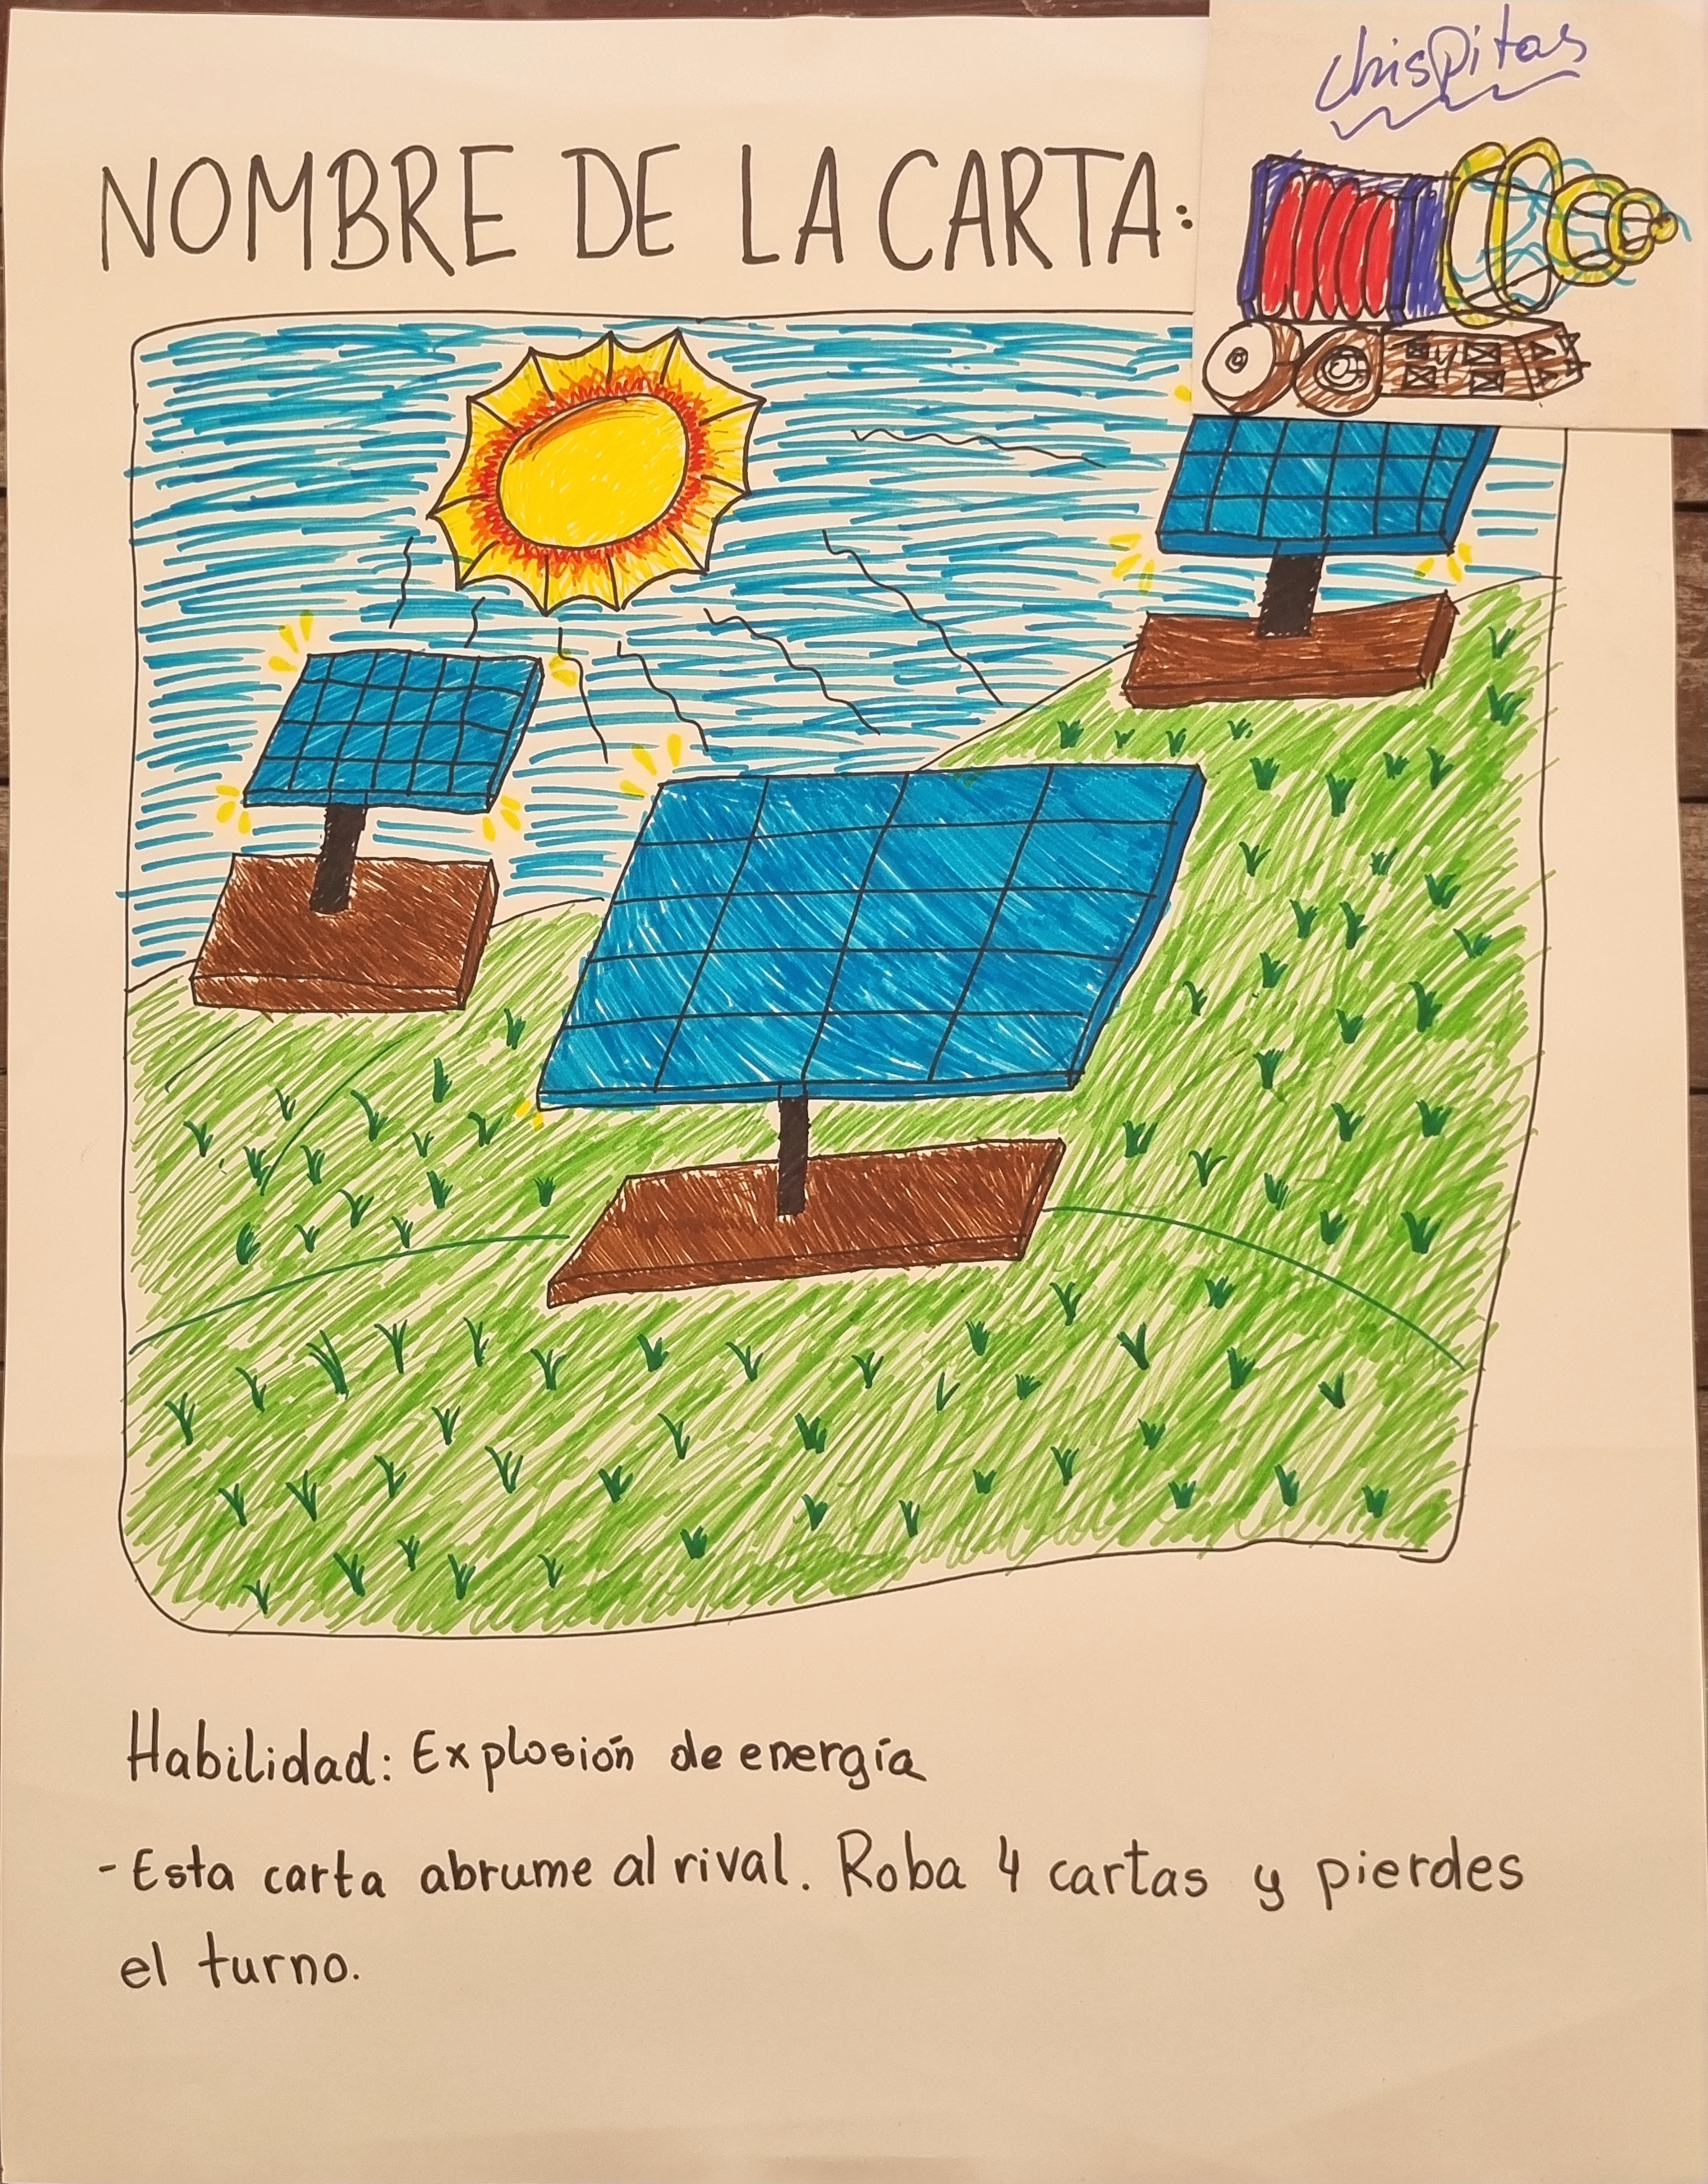 chispitas
NOMBRE DE LA CARTA:
Habilidad: Explosión de energía
-Esta carta abrume al rival. Roba 4 cartas y pierdes
el turno.